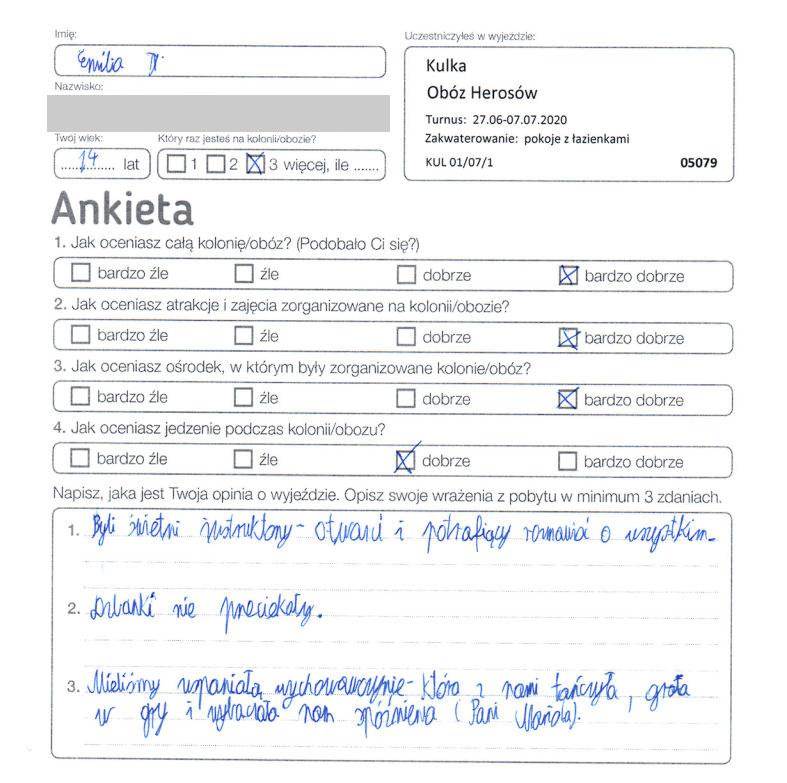 Imię:
Emilia D.
Nazwisko:
Twój wiek:
14 lat
Który raz jesteś na kolonii/obozie?
1 2 3 więcej, ile .......
Uczestniczyłeś w wyjeździe:
Kulka
Obóz Herosów
Turnus: 27.06-07.07.2020
Zakwaterowanie: pokoje z łazienkami
KUL 01/07/1 05079
Ankieta
1. Jak oceniasz całą kolonię/obóz? (Podobało Ci się?)
bardzo źle źle dobrze bardzo dobrze
2. Jak oceniasz atrakcje i zajęcia zorganizowane na kolonii/obozie?
bardzo źle źle dobrze bardzo dobrze
3. Jak oceniasz ośrodek, w którym były zorganizowane kolonie/obóz?
bardzo źle źle dobrze bardzo dobrze
4. Jak oceniasz jedzenie podczas kolonii/obozu?
bardzo źle źle dobrze bardzo dobrze
Napisz, jaka jest Twoja opinia o wyjeździe. Opisz swoje wrażenia z pobytu w minimum 3 zdaniach.
1. Byli świetni instruktorzy - otwarci i potrafiący rozmawiać o wszystkim.
2. Dzbanki nie przeciekały.
3. Mieliśmy wspaniałą wychowawczynię - która z nami tańczyła, grała
w gry i wybaczała nam spóźnienia (Pani Mariola).